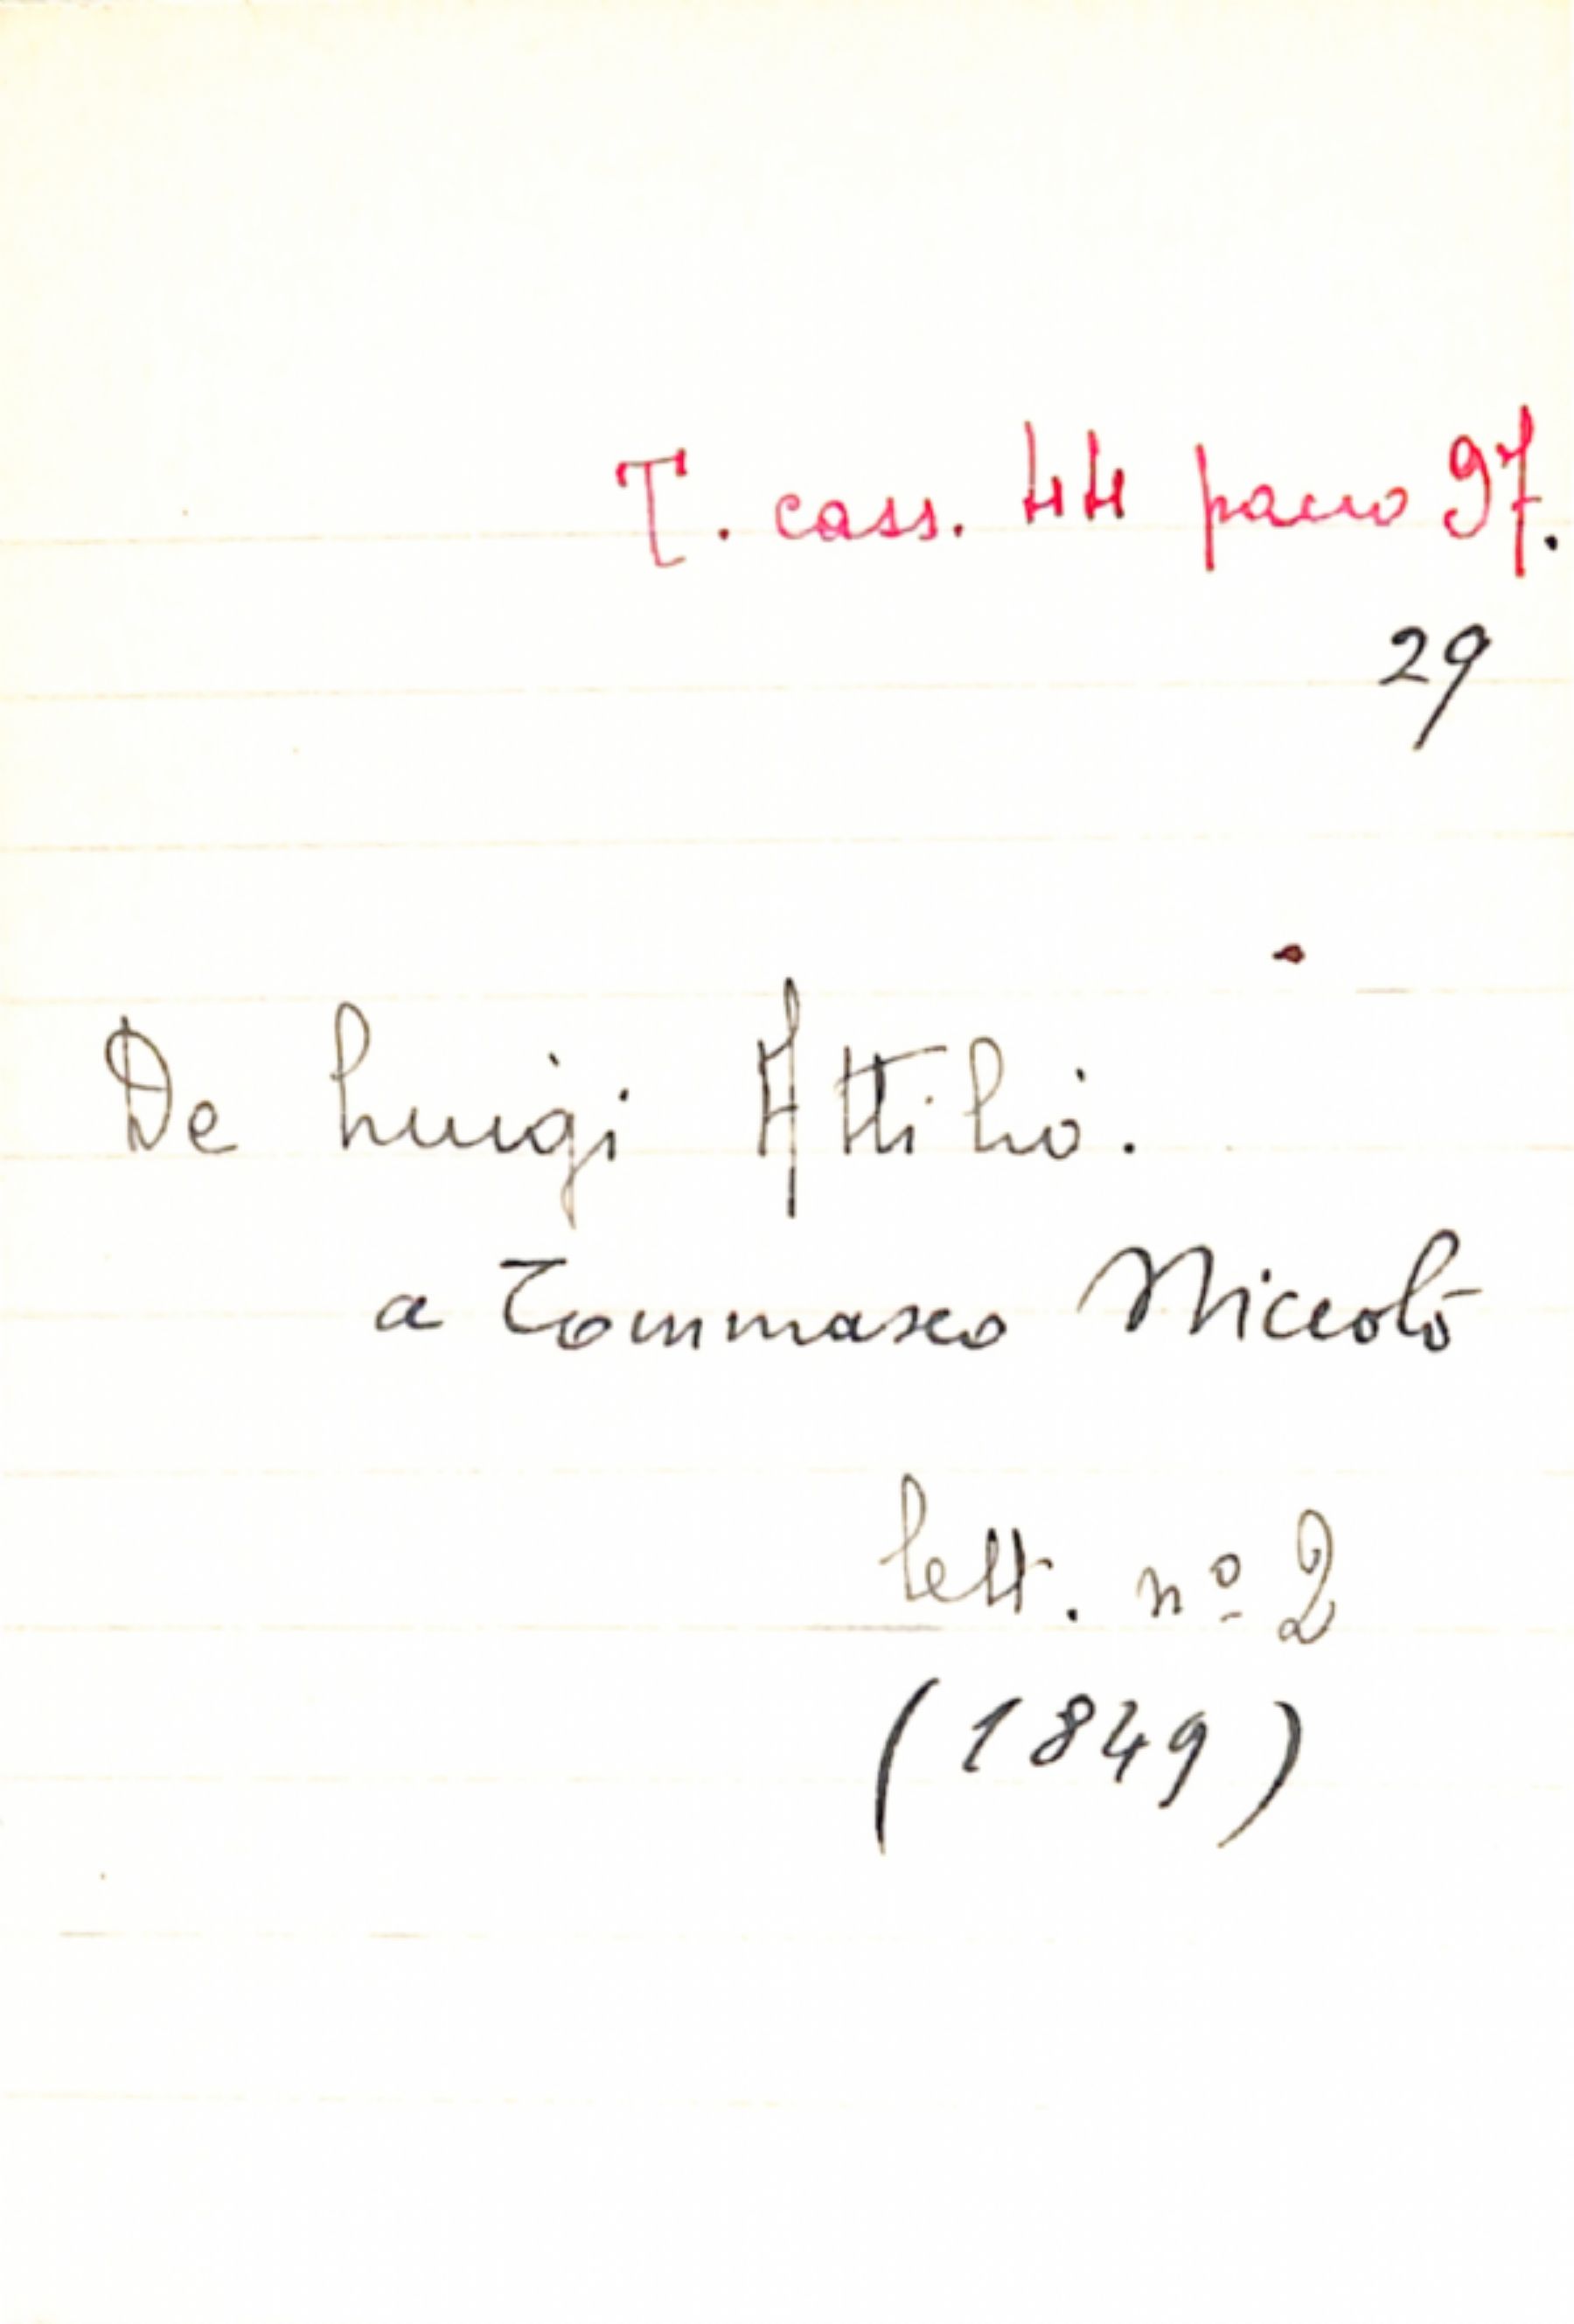 T. cass. 44 pacco 97.
29
De Luigi Attilio.
a Tommaseo Niccolò
lett. nº 2
(1849)